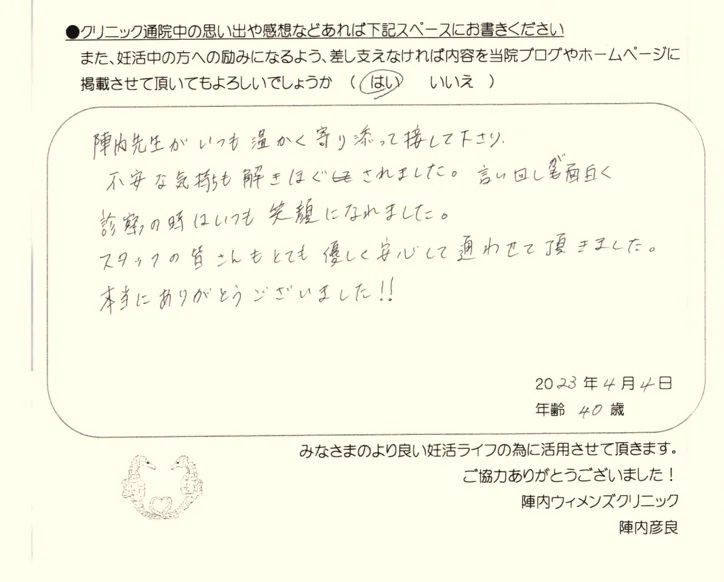 ●クリニック通院中の思い出や感想などあれば下記スペースにお書きください
また、妊活中の方への励みになるよう、差し支えなければ内容を当院ブログやホームページに
掲載させて頂いてもよろしいでしょうか （ はい　いいえ ）
陣内先生がいつも温かく寄り添って接して下さり、
不安な気持も解きほぐされました。言い回しが面白く
診察の時はいつも笑顔になれました。
スタッフの皆さんもとても優しく安心して通わせて頂きました。
本当にありがとうございました!!
2023年4月4日
年齢 40 歳
みなさまのより良い妊活ライフの為に活用させて頂きます。
ご協力ありがとうございました！
陣内ウィメンズクリニック
陣内彦良